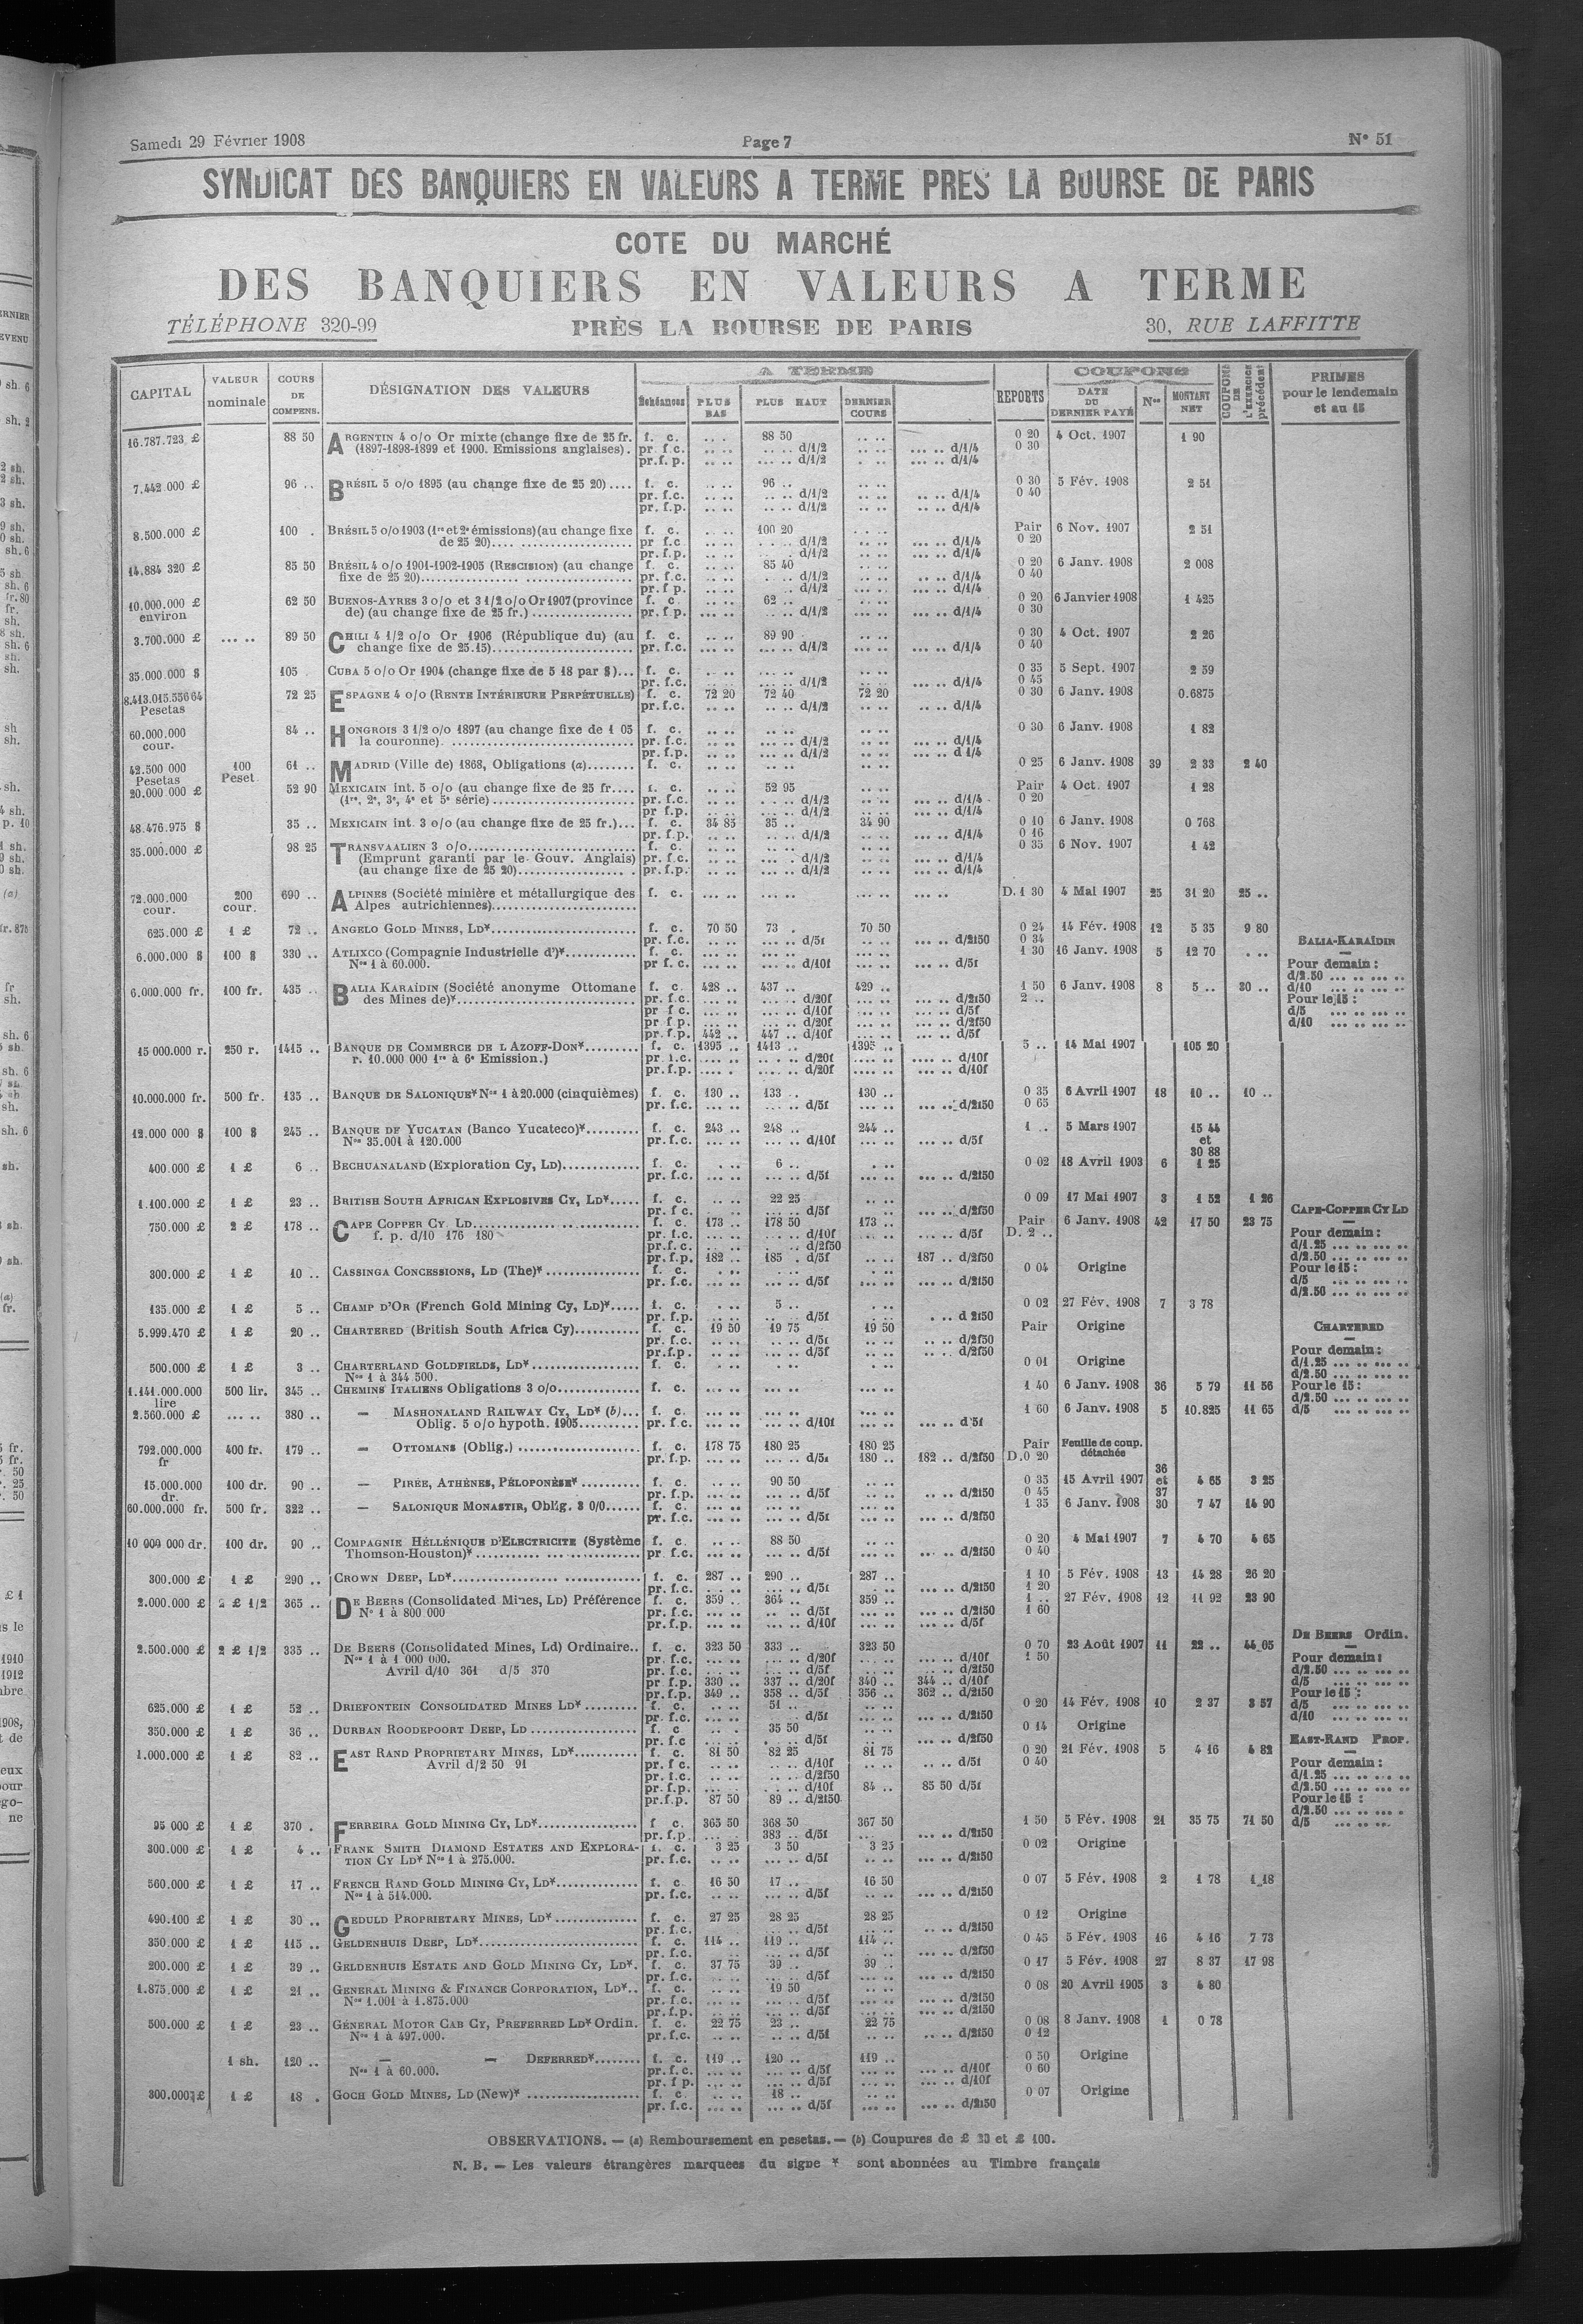 Samedi 29 Février 1908 Page 7 N° 51
SYNDICAT DES BANQUIERS EN VALEURS A TERME PRES LA BOURSE DE PARIS
COTE DU MARCHÉ
DES BANQUIERS EN VALEURS A TERME
TÉLÉPHONE 320-99 PRÈS LA BOURSE DE PARIS 30, RUE LAFFITTE
CAPITAL VALEUR nominale COURS DE COMPENS. DÉSIGNATION DES VALEURS A TERME Échéances PLUS BAS PLUS HAUT DERNIER COURS REPORTS COUPONS DATE DU DERNIER PAYÉ Nos MONTANT NET COUPONS DE L'EXERCICE précédent PRIMES pour le lendemain et au 15
16.787.723 £ 88 50 ARGENTIN 4 o/o Or mixte (change fixe de 25 fr. f. c. .. .. 88 50 .. .. 0 20 4 Oct. 1907 1 90
(1897-1898-1899 et 1900. Emissions anglaises). pr. f.c. .. .. d/1/2 .. .. d/1/4 0 30
pr.f.p. .. .. d/1/2 .. .. d/1/4
7.442.000 £ 96 .. BRÉSIL 5 o/o 1895 (au change fixe de 25 20).... f. c. 96 .. 0 30 5 Fév. 1908 2 51
pr. f.c. d/1/2 d/1/4 0 40
pr. f.p. d/1/2 d/1/4
8.500.000 £ 100 . BRÉSIL 5 o/o 1903 (1re et 2e émissions)(au change fixe f. c. 100 20 Pair 6 Nov. 1907 2 51
de 25 20).... pr f.c d/1/2 d/1/4 0 20
pr. f.p. d/1/2 d/1/4
14.884 320 £ 85 50 BRÉSIL 4 o/o 1901-1902-1905 (RESCISION) (au change f. c. 85 40 0 20 6 Janv. 1908 2 008
fixe de 25 20).... pr. f.c. d/1/2 d/1/4 0 40
pr. f p. d/1/2 d/1/4
10.000.000 £ environ 62 50 BUENOS-AYRES 3 o/o et 3 1/2 o/o Or 1907 (province f. c 62 .. 0 20 6 Janvier 1908 1 425
de) (au change fixe de 25 fr.) .... pr. f p. d/1/2 d/1/4 0 30
3.700.000 £ ... .. 89 50 CHILI 4 1/2 o/o Or 1906 (République du) (au f. c. 89 90 0 30 4 Oct. 1907 2 26
change fixe de 25.15).... pr. f.c. d/1/2 d/1/4 0 40
35.000.000 $ 105 CUBA 5 o/o Or 1904 (change fixe de 5 18 par $)... f. c. 0 35 5 Sept. 1907 2 59
pr. f.c. d/1/2 d/1/4 0 45
8.413.015.536 64 Pesetas 72 25 ESPAGNE 4 o/o (RENTE INTÉRIEURE PERPÉTUELLE) f. c. 72 20 72 40 72 20 0 30 6 Janv. 1908 0.6875
pr. f.c. d/1/2 d/1/4
60.000.000 cour. 84 .. HONGROIS 3 1/2 o/o 1897 (au change fixe de 1 05 f. c. 0 30 6 Janv. 1908 1 82
la couronne). .... pr. f.c. d/1/2 d/1/4
pr. f.p. d/1/2 d 1/4
42.500 000 Pesetas 100 Peset. 61 .. MADRID (Ville de) 1868, Obligations (a)........ f. c. 0 25 6 Janv. 1908 39 2 33 2 40
20.000.000 £ 52 90 MEXICAIN int. 5 o/o (au change fixe de 25 fr.... f. c. 52 95 Pair 4 Oct. 1907 1 28
(1re, 2e, 3e, 4e et 5e série).... pr. f.c. d/1/2 d/1/4 0 20
pr f.p. d/1/2 d/1/4
48.476.975 $ 35 .. MEXICAIN int. 3 o/o (au change fixe de 25 fr.)... f. c. 34 85 35 .. 34 90 0 10 6 Janv. 1908 0 768
pr. f.p. d/1/2 d/1/4 0 16
35.000.000 £ 98 25 TRANSVAALIEN 3 o/o.... f. c. 0 35 6 Nov. 1907 1 42
(Emprunt garanti par le Gouv. Anglais) pr. f.c. d/1/2 d/1/4
(au change fixe de 25 20).... pr. f.p. d/1/2 d/1/4
72.000.000 cour. 200 cour. 690 .. ALPINES (Société minière et métallurgique des f. c. D.1 30 4 Mai 1907 25 31 20 25 ..
Alpes autrichiennes)....
625.000 £ 1 £ 72 .. ANGELO GOLD MINES, LD*.... f. c. 70 50 73 . 70 50 0 24 14 Fév. 1908 12 5 35 9 80
pr. f.c. d/5f d/2f50 0 34
6.000.000 $ 100 $ 330 .. ATLIXCO (Compagnie Industrielle d')*.... f. c. 1 30 16 Janv. 1908 5 12 70 . ..
Nos 1 à 60.000. pr f. c. d/10f d/5f
6.000.000 fr. 100 fr. 435 .. BALIA KARAÏDIN (Société anonyme Ottomane f. c. 428 .. 437 .. 429 .. 1 50 6 Janv. 1908 8 5 .. 30 ..
des Mines de)*.... pr. f.c. d/20f d/2f50 2 ..
pr f c. d/10f d/5f
pr f p. d/20f d/2f50
pr. f.p. 442 .. 447 .. d/10f d/5f
15 000.000 r. 250 r. 1415 .. BANQUE DE COMMERCE DE L AZOFF-DON*.... f. c. 1395 .. 1413 .. 1395 .. 5 .. 14 Mai 1907 105 20
r. 10.000 000 1re à 6e Emission.) pr. f.c. d/20f d/10f
pr. f.p. d/20f d/10f
10.000.000 fr. 500 fr. 135 .. BANQUE DE SALONIQUE* Nos 1 à 20.000 (cinquièmes) f. c. 130 .. 133 .. 130 .. 0 35 6 Avril 1907 18 10 .. 10 ..
pr. f.c. d/5f d/2f50 0 65
12.000 000 $ 100 $ 245 .. BANQUE DE YUCATAN (Banco Yucateco)*.... f. c. 243 .. 248 .. 244 .. 1 .. 5 Mars 1907 15 44 et 30 88
Nos 35.001 à 120.000 pr. f.c. d/10f d/5f
400.000 £ 1 £ 6 .. BECHUANALAND (Exploration Cy, LD).... f. c. 6 .. 0 02 18 Avril 1903 6 1 25
pr. f.c. d/5f d/2f50
1.100.000 £ 1 £ 23 .. BRITISH SOUTH AFRICAN EXPLOSIVES CY, LD*..... f. c. 22 25 0 09 17 Mai 1907 3 1 52 1 26
pr. f c. d/5f d/2f50
750.000 £ 2 £ 178 .. CAPE COPPER CY. LD.... f. c. 173 .. 178 50 173 .. Pair 6 Janv. 1908 42 17 50 23 75
f. p. d/10 176 180 pr. f.c. d/10f d/5f D. 2 ..
pr.f.c. d/2f50
pr. f.p. 182 .. 185 . d/5f 187 .. d/2f50
300.000 £ 1 £ 10 .. CASSINGA CONCESSIONS, LD (The)*.... f. c. 0 04 Origine
pr. f.c. d/5f d/2f50
135.000 £ 1 £ 5 .. CHAMP D'OR (French Gold Mining Cy, LD)*..... f. c. 5 .. 0 02 27 Fév. 1908 7 3 78
pr. f.p. d/5f d 2f50
5.999.470 £ 1 £ 20 .. CHARTERED (British South Africa Cy).... f. c. 19 50 19 75 19 50 Pair Origine
pr. f.c. d/5f d/2f50
pr.f.p. d/5f d/2f50
500.000 £ 1 £ 3 .. CHARTERLAND GOLDFIELDS, LD*.... f. c. 0 01 Origine
Nos 1 à 344 500.
1.141.000.000 lire 500 lir. 345 .. CHEMINS ITALIENS Obligations 3 o/o.... f. c. 1 40 6 Janv. 1908 36 5 79 11 56
2.560.000 £ ... .. 380 .. — MASHONALAND RAILWAY CY, LD* (b)... f. c. 1 60 6 Janv. 1908 5 10.825 11 65
Oblig. 5 o/o hypoth. 1905.... pr. f.c. d/10f d 5f
792.000.000 fr 400 fr. 179 .. — OTTOMANS (Oblig.) .... f. c. 178 75 180 25 180 25 Pair Feuille de coup. détachée
pr. f.p. d/5f 180 .. 182 .. d/2f50 D.0 20
15.000.000 dr. 100 dr. 90 .. — PIRÉE, ATHÈNES, PÉLOPONÈSE*.... f. c. 90 50 0 35 15 Avril 1907 36 et 37 4 65 3 25
pr. f.p. d/5f d/2f50 0 45
60.000.000 fr. 500 fr. 322 .. — SALONIQUE MONASTIR, Oblig. 3 0/0...... f. c. 1 35 6 Janv. 1908 30 7 47 14 90
pr. f.c. d/5f d/2f50
10 000 000 dr. 100 dr. 90 .. COMPAGNIE HÉLLÉNIQUE D'ÉLECTRICITE (Système f. c. 88 50 0 20 4 Mai 1907 7 4 70 4 65
Thomson-Houston)*.... pr. f.c. d/5f d/2f50 0 40
300.000 £ 1 £ 290 .. CROWN DEEP, LD*.... f. c. 287 .. 290 .. 287 .. 1 10 5 Fév. 1908 13 14 28 26 20
pr. f.c. d/5f d/2f50 1 20
2.000.000 £ 2 £ 1/2 365 .. DE BEERS (Consolidated Mines, LD) Préférence f. c. 359 .. 364 .. 359 .. 1 .. 27 Fév. 1908 12 11 92 23 90
N° 1 à 800 000 pr. f.c. d/5f d/2f50 1 60
pr. f.p. d/10f d/5f
2.500.000 £ 2 £ 1/2 335 .. DE BEERS (Consolidated Mines, Ld) Ordinaire.. f. c. 323 50 333 .. 323 50 0 70 23 Août 1907 11 22 .. 44 65
Nos 1 à 1 000 000. pr. f.c. d/20f d/10f 1 50
Avril d/10 361 d/5 370 pr. f.c. d/5f d/2f50
pr. f.p. 330 .. 337 .. d/20f 340 .. 344 .. d/10f
pr. f.p. 349 .. 358 .. d/5f 356 .. 362 .. d/2f50
625.000 £ 1 £ 52 .. DRIEFONTEIN CONSOLIDATED MINES LD*.... f. c. 51 .. 0 20 14 Fév. 1908 10 2 37 3 57
pr. f.c. d/5f d/2f50
350.000 £ 1 £ 36 .. DURBAN ROODEPOORT DEEP, LD .... f. c 35 50 0 14 Origine
pr. f.c d/5f d/2f50
1.000.000 £ 1 £ 82 .. EAST RAND PROPRIETARY MINES, LD*.... f. c. 81 50 82 25 81 75 0 20 21 Fév. 1908 5 4 16 4 82
Avril d/2 50 91 pr. f c. d/10f d/5f 0 40
pr. f.c. d/2f50
pr. f.p. d/10f 84 .. 85 50 d/5f
pr.f.p. 87 50 89 .. d/2f50
95 000 £ 1 £ 370 . FERREIRA GOLD MINING CY, LD*.... f. c. 365 50 368 50 367 50 1 50 5 Fév. 1908 21 35 75 71 50
pr. f.p. 383 .. d/5f d/2f50
300.000 £ 1 £ 4 .. FRANK SMITH DIAMOND ESTATES AND EXPLORA- f. c. 3 25 3 50 3 25 0 02 Origine
TION CY LD* Nos 1 à 275.000. pr. f.c. d/5f d/2f50
560.000 £ 1 £ 17 .. FRENCH RAND GOLD MINING CY, LD*.... f. c 16 50 17 .. 16 50 0 07 5 Fév. 1908 2 1 78 1 18
Nos 1 à 514.000. pr. f.c. d/5f d/2f50
490.100 £ 1 £ 30 .. GEDULD PROPRIETARY MINES, LD*.... f. c. 27 25 28 25 28 25 0 12 Origine
pr. f.c. d/5f d/2f50
350.000 £ 1 £ 115 .. GELDENHUIS DEEP, LD*.... f. c. 114 .. 119 .. 114 .. 0 45 5 Fév. 1908 16 4 16 7 73
pr. f.c. d/5f d/2f50
200.000 £ 1 £ 39 .. GELDENHUIS ESTATE AND GOLD MINING CY, LD*. f. c. 37 75 39 .. 39 . 0 17 5 Fév. 1908 27 8 37 17 98
pr. f.c. d/5f d/2f50
1.875.000 £ 1 £ 21 .. GENERAL MINING & FINANCE CORPORATION, LD*.. f. c. 19 50 0 08 20 Avril 1905 3 4 80
Nos 1.001 à 1.875.000 pr. f.c. d/5f d/2f50
pr. f.p. d/5f d/2f50
500.000 £ 1 £ 23 .. GÉNÉRAL MOTOR CAB CY, PREFERRED LD* Ordin. f. c. 22 75 23 .. 22 75 0 08 8 Janv. 1908 1 0 78
Nos 1 à 497.000. pr. f.c. d/5f d/2f50 0 12
1 sh. 120 .. — — DEFERRED*........ f. c. 119 .. 120 .. 119 .. 0 50 Origine
Nos 1 à 60.000. pr. f.c. d/5f d/10f 0 60
pr. f p. d/5f d/10f
300.000 £ 1 £ 18 . GOCH GOLD MINES, LD (New)*.... f. c. 18 .. 0 07 Origine
pr. f.c. d/5f d/2f50
BALIA-KARAÏDIN
Pour demain :
d/2.50 ... .. ... ..
d/10 ... .. ... ..
Pour le 15 :
d/5 ... .. ... ..
d/10 ... .. ... ..
CAPE-COPPER CY LD
Pour demain :
d/1.25 ... .. ... ..
d/2.50 ... .. ... ..
Pour le 15 :
d/5 ... .. ... ..
d/2.50 ... .. ... ..
CHARTERED
Pour demain :
d/1.25 ... .. ... ..
d/2.50 ... .. ... ..
Pour le 15 :
d/2.50 ... .. ... ..
d/5 ... .. ... ..
DE BEERS Ordin.
Pour demain :
d/2.50 ... .. ... ..
d/5 ... .. ... ..
Pour le 15 :
d/5 ... .. ... ..
d/10 ... .. ... ..
EAST-RAND PROP.
Pour demain :
d/1.25 ... .. ... ..
d/2.50 ... .. ... ..
Pour le 15 :
d/2.50 ... .. ... .
d/5 ... .. ... ..
OBSERVATIONS. — (a) Remboursement en pesetas. — (b) Coupures de £ 23 et £ 100.
N. B. — Les valeurs étrangères marquees du signe * sont abonnées au Timbre français